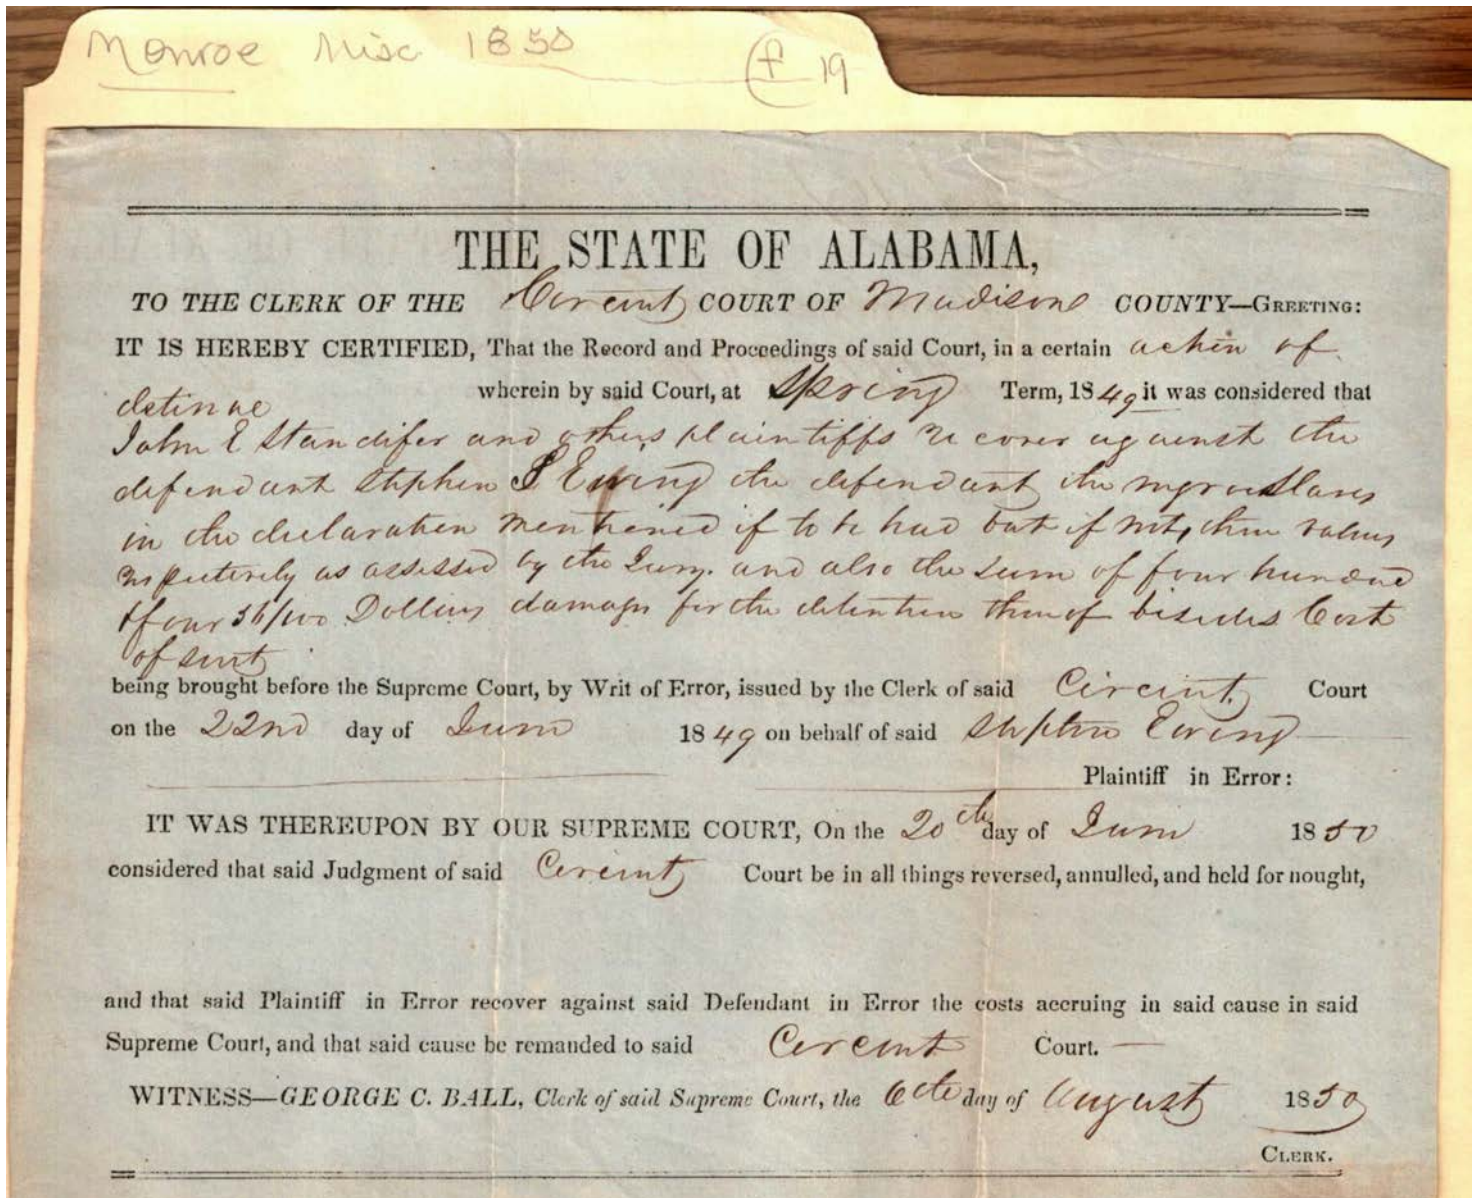 Monroe Misc 1850 f 19
THE STATE OF ALABAMA,
TO THE CLERK OF THE Circuit COURT OF Madison COUNTY—GREETING:
IT IS HEREBY CERTIFIED, That the Record and Proceedings of said Court, in a certain action of
detinue wherein by said Court, at Spring Term, 1849 it was considered that
John E Standifer and others plaintiffs recover against the
defendant Stephen S Ewing the defendant the negro slaves
in the declaration mentioned if to be had but if not, their values
respectively as assessed by the Jury. and also the sum of four hundred
& four 36/100 Dollars damages for the detention thereof besides Cost
of suit
being brought before the Supreme Court, by Writ of Error, issued by the Clerk of said Circuit Court
on the 22nd day of June 1849 on behalf of said Stephen Ewing
Plaintiff in Error:
IT WAS THEREUPON BY OUR SUPREME COURT, On the 20th day of June 1850
considered that said Judgment of said Circuit Court be in all things reversed, annulled, and held for nought,
and that said Plaintiff in Error recover against said Defendant in Error the costs accruing in said cause in said
Supreme Court, and that said cause be remanded to said Circuit Court.
WITNESS—GEORGE C. BALL, Clerk of said Supreme Court, the 6th day of August 1850
CLERK.